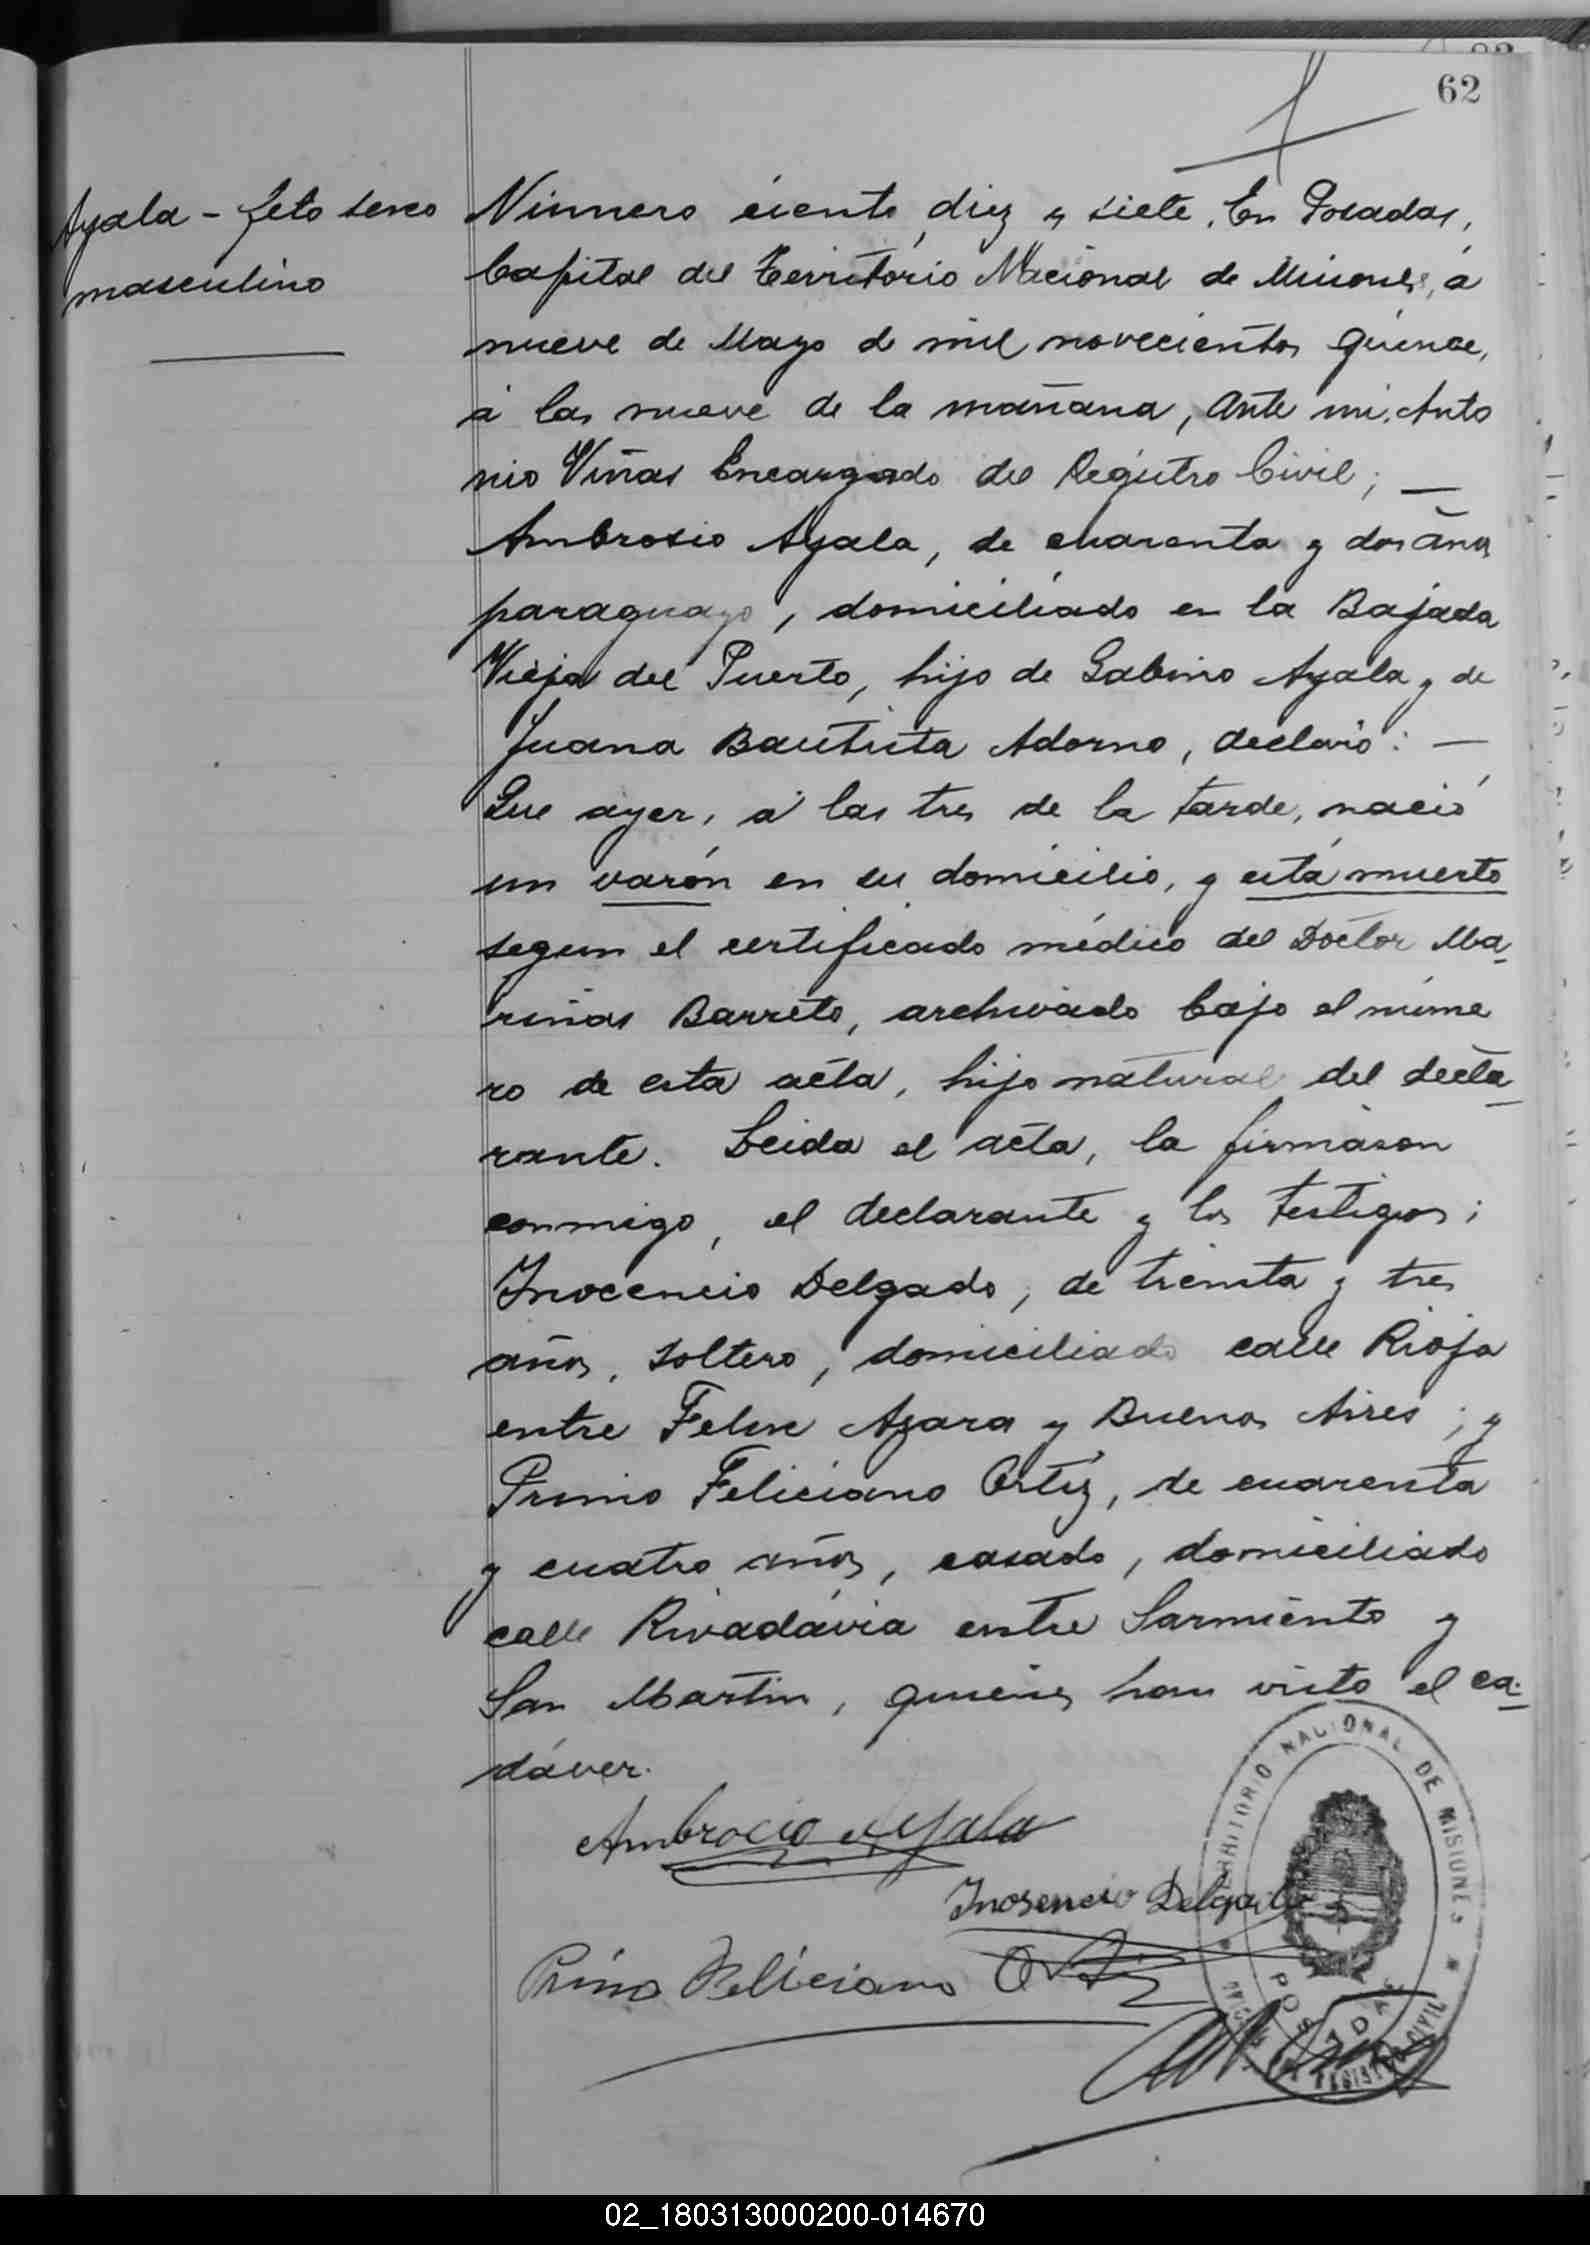 62
Ayala - feto sexo
masculino
Número ciento diez y siete. En Posadas,
Capital del Territorio Nacional de Misiones, á
nueve de Mayo de mil novecientos quince,
á las nueve de la mañana, ante mi, Anto
nio Viñas Encargado del Registro Civil; —
Ambrosio Ayala, de cuarenta y dos años
paraguayo, domiciliado en la Bajada
Vieja del Puerto, hijo de Gabino Ayala y de
Juana Bautista Adorno, declaró: —
Que ayer, á las tres de la tarde, nació
un varón en su domicilio, y está muerto
segun el certificado médico del Doctor Ma-
riñas Barreto, archivado bajo el núme
ro de esta acta, hijo natural del decla-
rante. Leida el acta, la firmaron
conmigo, el declarante y los testigos;
Inocencio Delgado, de treinta y tres
años, soltero, domiciliado calle Rioja
entre Felix Azara y Buenos Aires; y
Primo Feliciano Ortiz, de cuarenta
y cuatro años, casado, domiciliado
calle Rivadavia entre Sarmiento y
San Martin, quienes han visto el ca-
dáver.
Ambrocio Ayala
Inosencio Delgado
Primo Feliciano Ortiz
TERRITORIO NACIONAL DE MISIONES
POSADAS
REGISTRO CIVIL
02_180313000200-014670